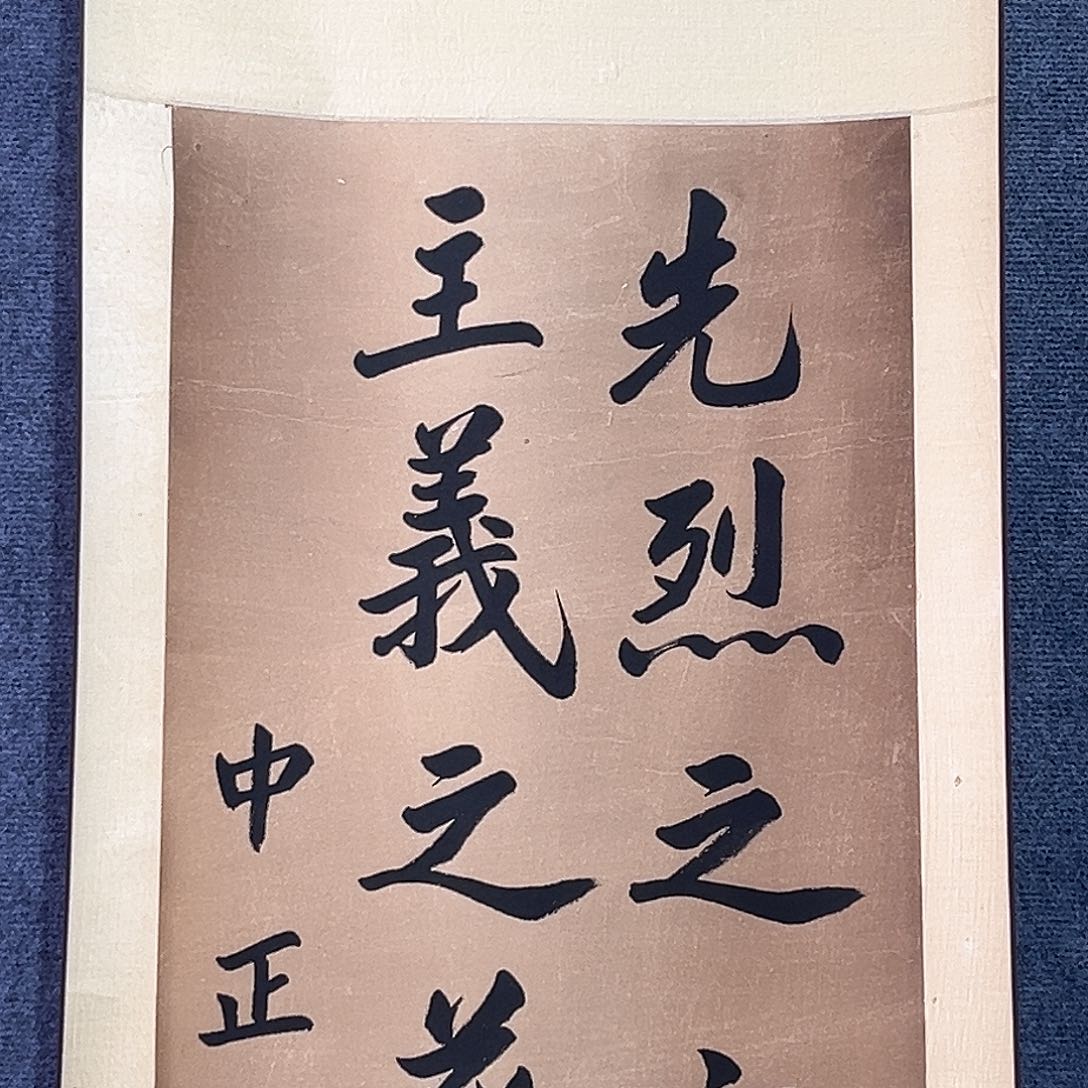 先烈之
主義之
中正